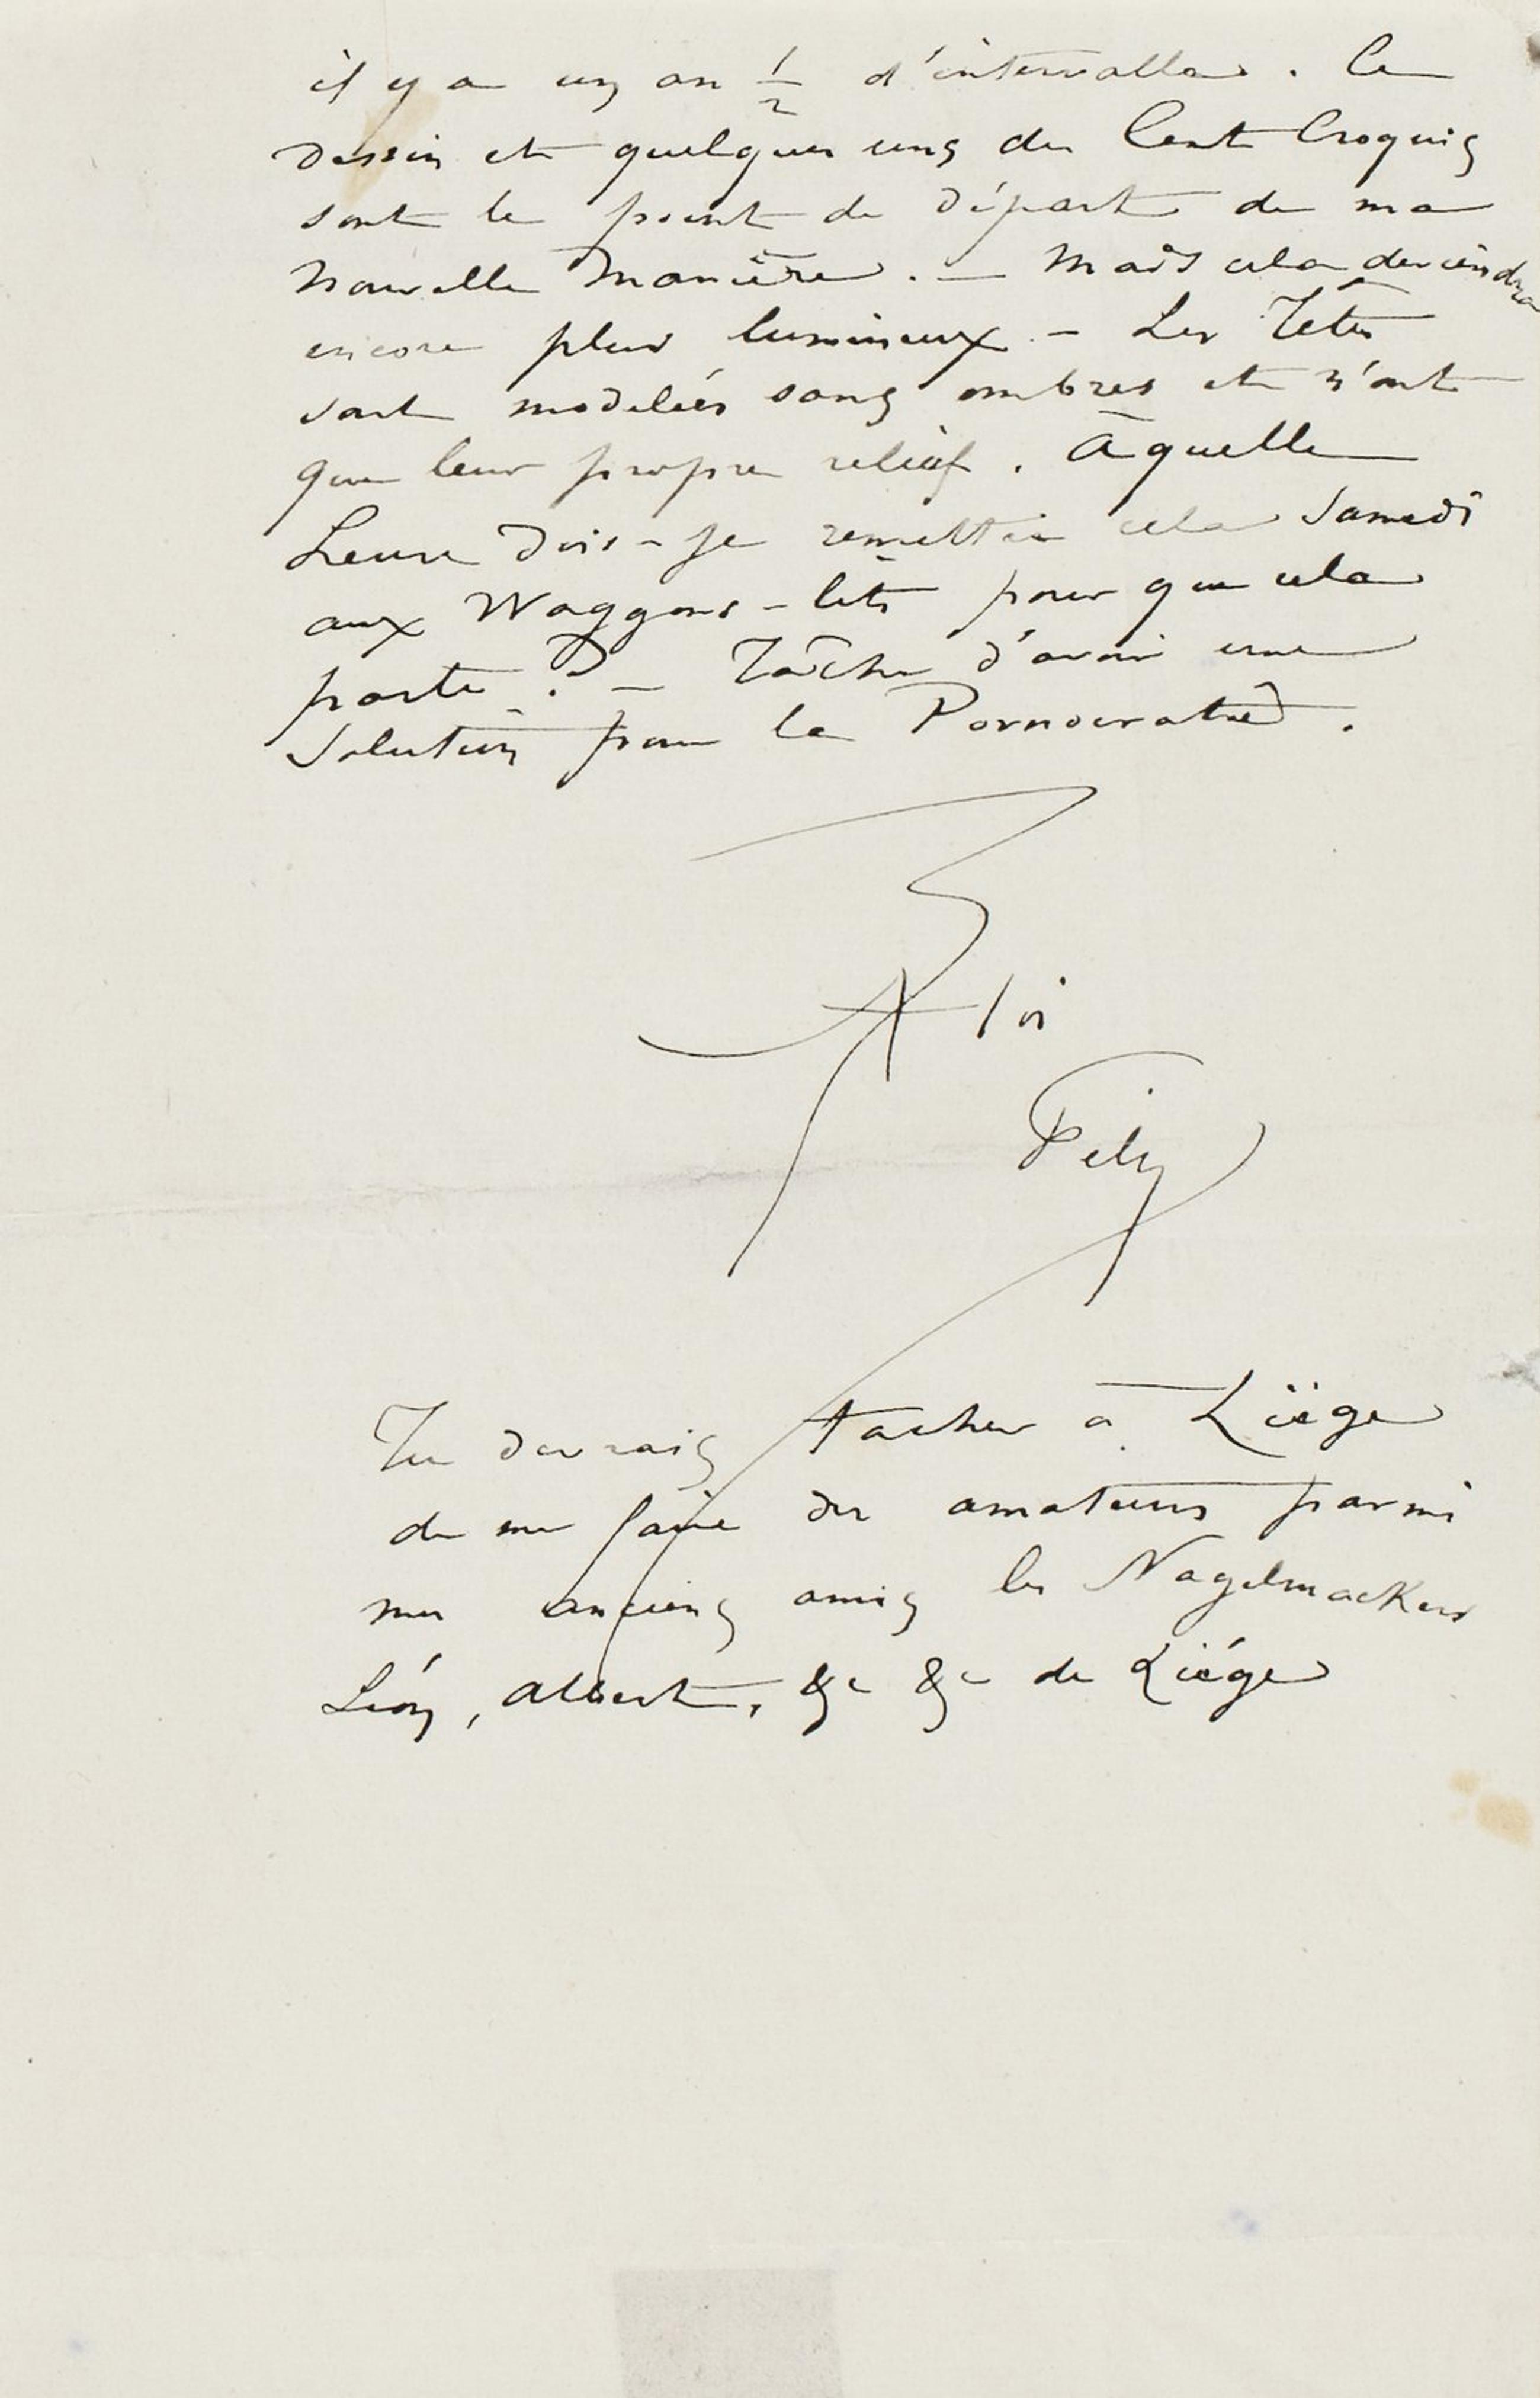 il y a un an ½ d'intervalle. Ce
dessin et quelques uns des Cent Croquis
sont le point de départ de ma
nouvelle manière. — Mais cela deviendra
encore plus lumineux — Les Têtes
sont modelées sans ombres et n'ont
que leur propre relief. À quelle
heure dois-je remettre cela Samedi
aux Waggons-lits pour que cela
parte ? — Tâche d'avoir une
solution pour la Pornocratie.
à toi
Fély
Tu devrais tacher à Liège
de me faire des amateurs parmi
mes anciens amis les Nagelmackers
Léon, Albert, &c &c de Liége